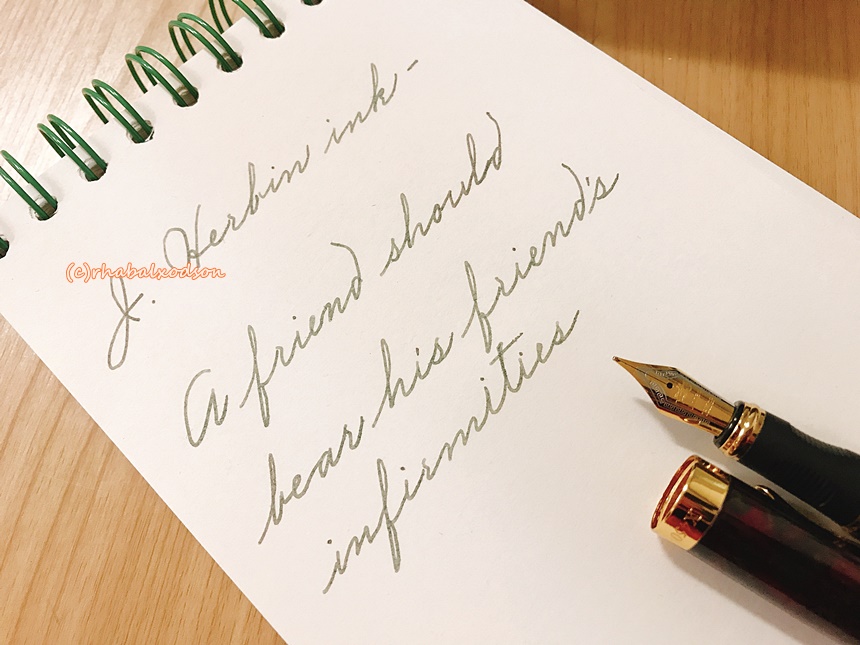 J. Herbin ink -
(c)rhabalxodson
A friend should
bear his friend's
infirmities